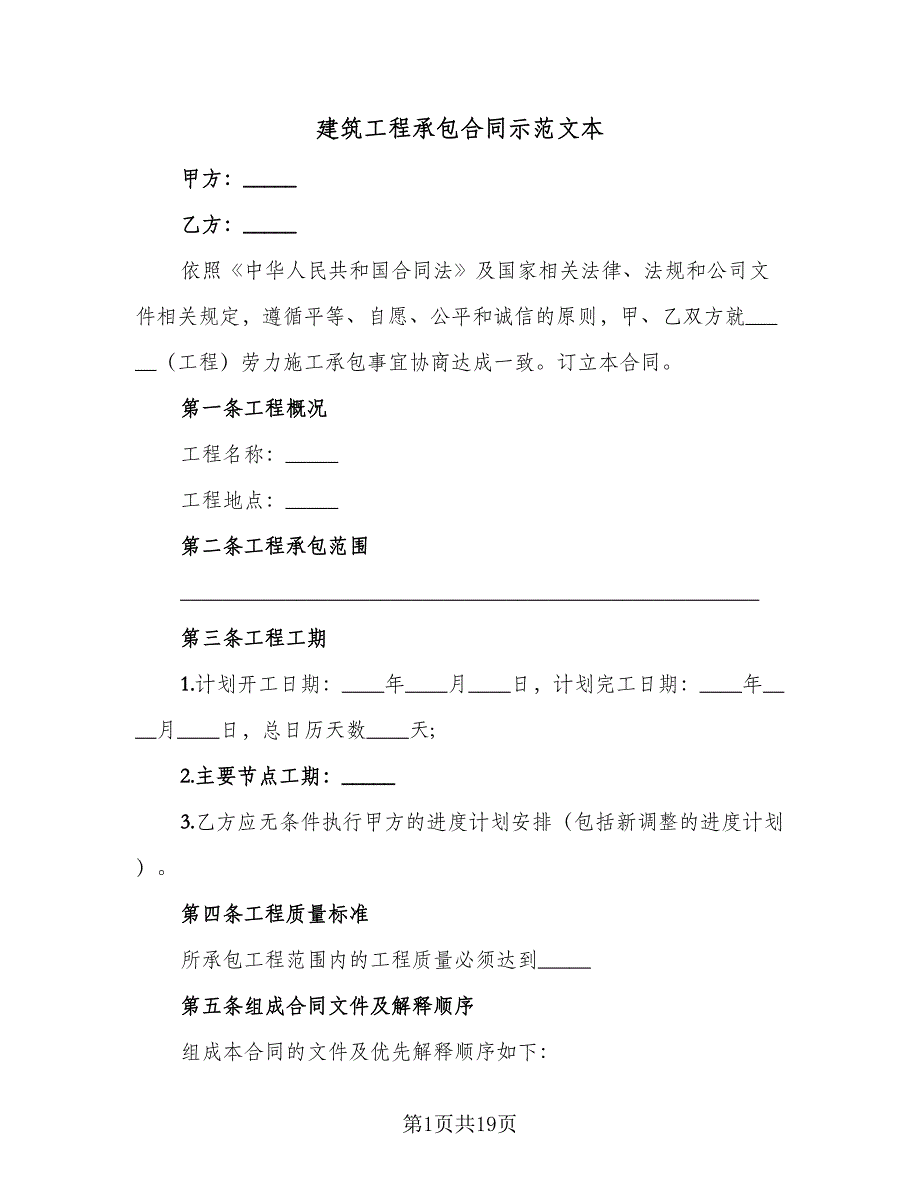 建筑工程承包合同示范文本
甲方：_____
乙方：_____
依照《中华人民共和国合同法》及国家相关法律、法规和公司文
件相关规定，遵循平等、自愿、公平和诚信的原则，甲、乙双方就___
__（工程）劳力施工承包事宜协商达成一致。订立本合同。
第一条工程概况
工程名称：_____
工程地点：_____
第二条工程承包范围
_______________________________________________________
第三条工程工期
1.计划开工日期：____年____月____日，计划完工日期：____年__
__月____日，总日历天数____天;
2.主要节点工期：_____
3.乙方应无条件执行甲方的进度计划安排（包括新调整的进度计划
）。
第四条工程质量标准
所承包工程范围内的工程质量必须达到_____
第五条组成合同文件及解释顺序
组成本合同的文件及优先解释顺序如下：
第1页共19页